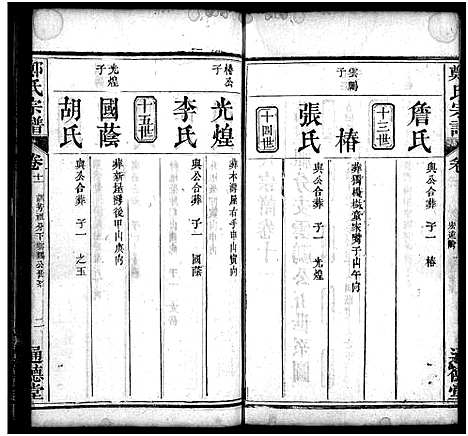 鄭氏宗譜
通德堂
詹氏
與公合葬 子一 椿
十三世
雲鵬子
椿
葬獨樹楓章家嘴子山午向
張氏
與公合葬 子一 光煌
十四世
椿公子
光煌
葬木灣屋右手甲山寅向
李氏
與公合葬 子一 國蔭
十五世
光煌子
國蔭
葬新屋灣後甲山庚向
胡氏
與公合葬 子一 之玉
鄭氏宗譜
卷十
二
通德堂